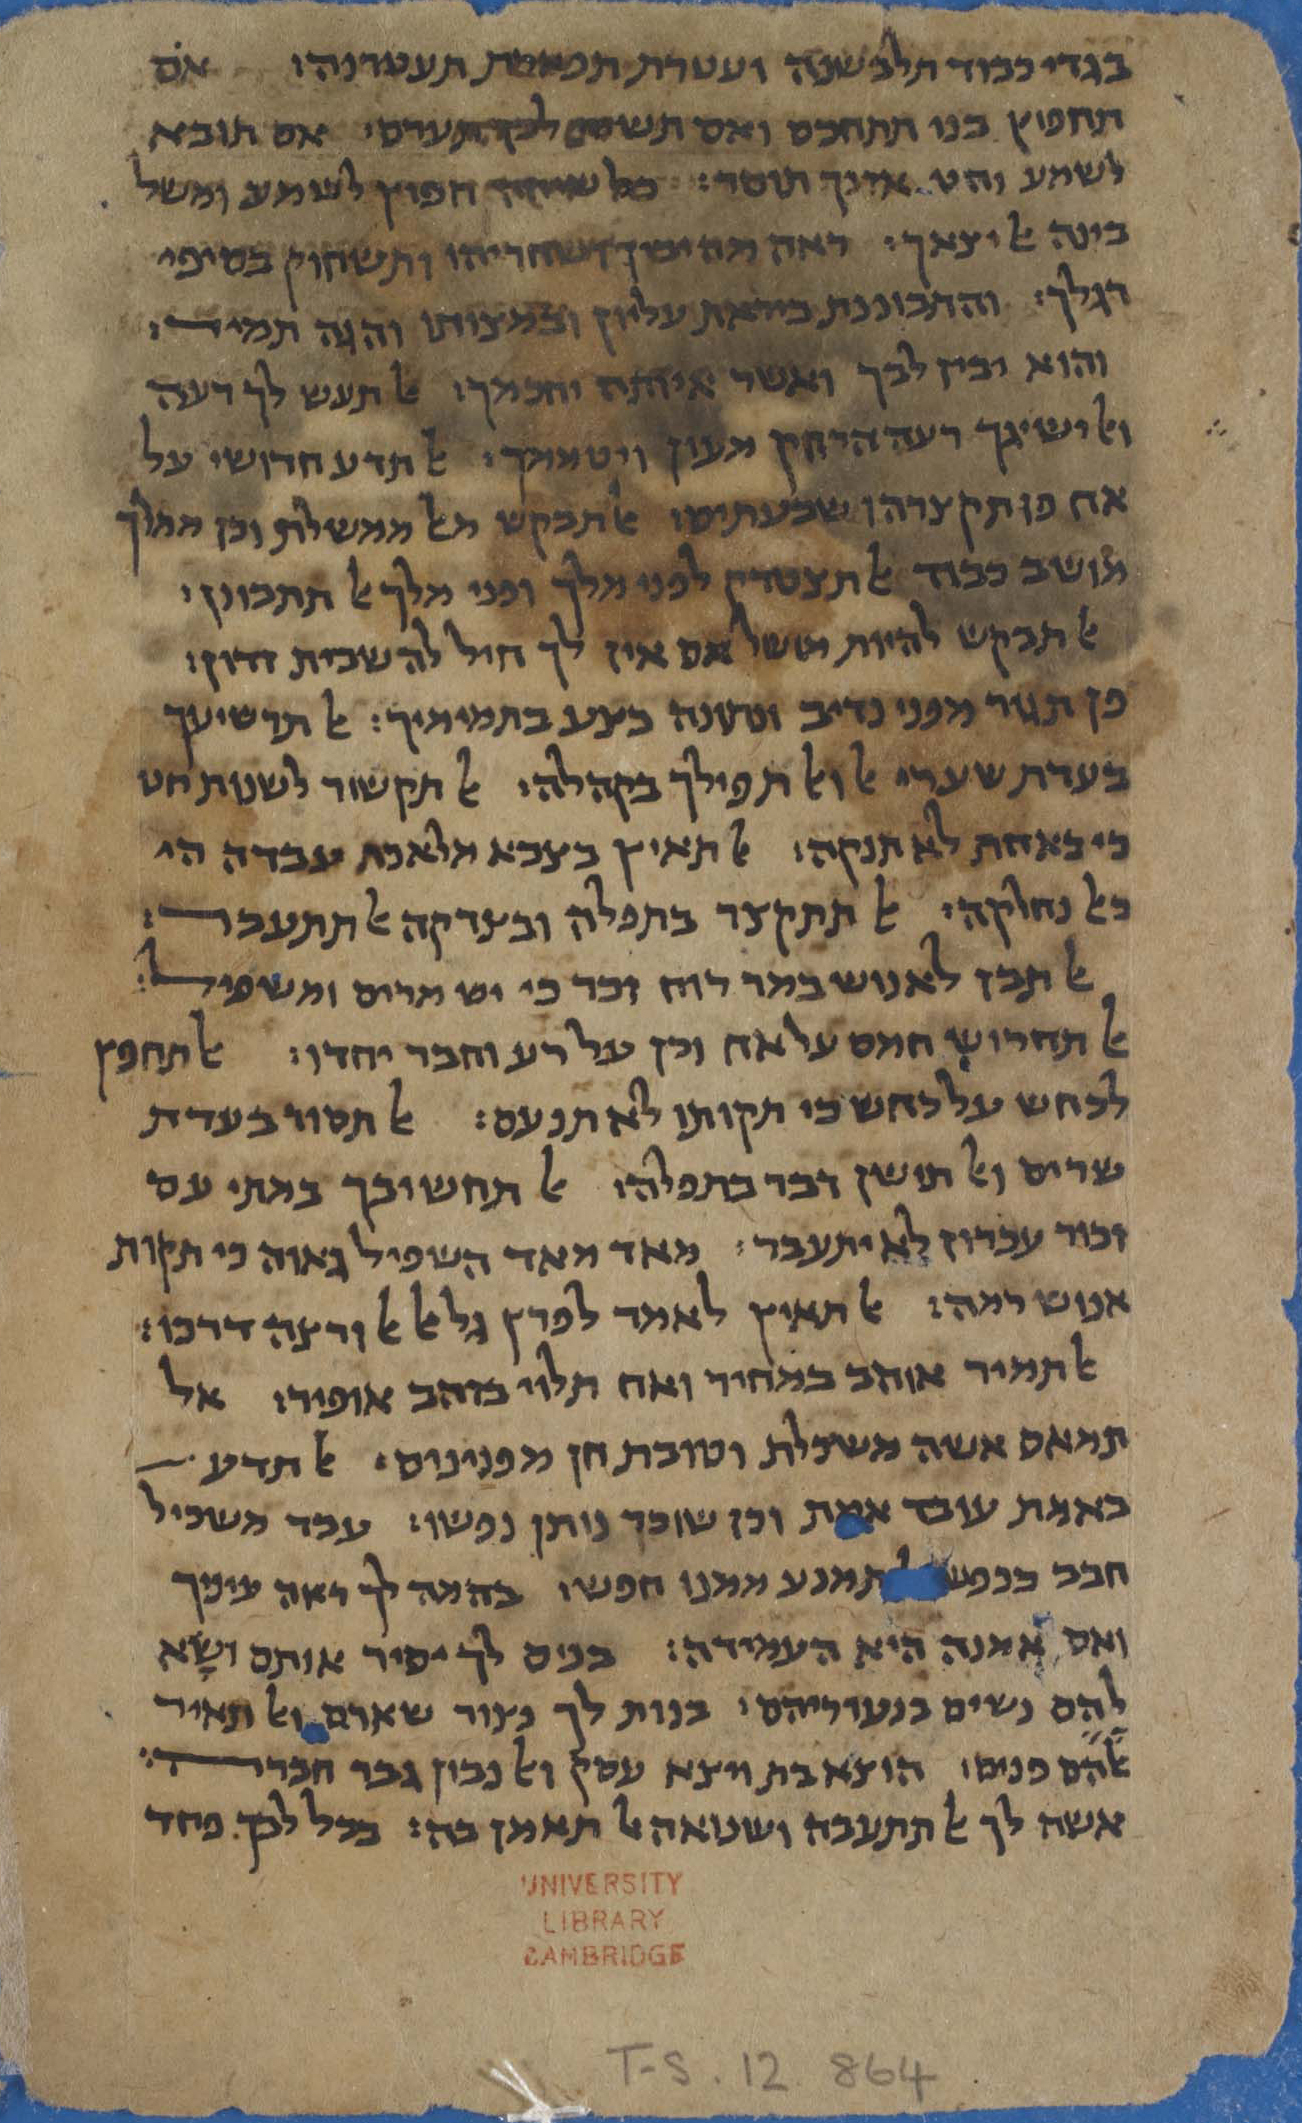 בגדי כבוד תלבשנה ועטרת תפארת תעטרנה: אם
תחפוץ בני תתחכם ואם תשים לבך תערם: אם תובא
לשמע והט אזנך תוסר: כל שיחה חפוץ לשמע ומשל
בינה אל יצאך: ראה מה יבין ושחריהו ותשחוק בסיפי
רגלך: והתבוננת ביראת עליון ובמצותו והגה תמיד:
והוא יבין לבך ואשר איותה יחכמך: אל תעש לך רעה
ואל ישיגך רעה הרחק מעון ויט ממך: אל תדע חרושי על
אח פן תקצרהו שבעתים: אל תבקש מאל ממשלת וכן ממלך
מושב כבוד אל תצטדק לפני מלך ופני מלך אל תתבונן:
אל תבקש להיות מושל אם אין לך חיל להשבית זדון:
פן תגור מפני נדיב ונתתה בצע בתמימיך: אל תרשיעך
בעדת שערי אל ואל תפילך בקהלה: אל תקשור לשנות חט
כי באחת לא תנקה: אל תאיץ בצבא מלאכת עבדה הי
כאל נחלקה: אל תתקצר בתפלה ובצדקה אל תתעבר:
אל תבז לאנוש במר רוח זכר כי יש מרים ומשפיל:
אל תחרוש חמס על אח וכן על רע וחבר יחדו: אל תחפץ
לכחש על כחש כי תקותו לא תנעם: אל תסוד בעדת
שרים ואל תישן דבר בתפלה: אל תחשיבך במתי עם
זכור עכרון לא יתעבר: מאד מאד השפיל גאוה כי תקות
אנוש רמה: אל תאיץ לאמר לפרץ גל אל אל ורצה דרכו:
אל תמיר אוהב במחיר ואח תלוי בזהב אופיר: אל
תמאס אשה משכלת וטובת חן מפנינים: אל תדע
באמת עובד אמת וכן שוכר נותן נפשו: עבד משכיל
חבב כנפש תמנע ממנו חפש: בהמה לך ראה עיניך
ואם אמנה היא העמידה: בנים לך יסיר אותם ושא
להם נשים בנעוריהם: בנות לך נצור שארם ואל תאיר
אלהם פנים: הוצא בת ויצא עסק ואל נבון גבר חברה:
אשה לך אל תתעבה ושנואה אל תאמן בה: בכל לבך פחד
UNIVERSITY
LIBRARY
CAMBRIDGE
T-S. 12. 864